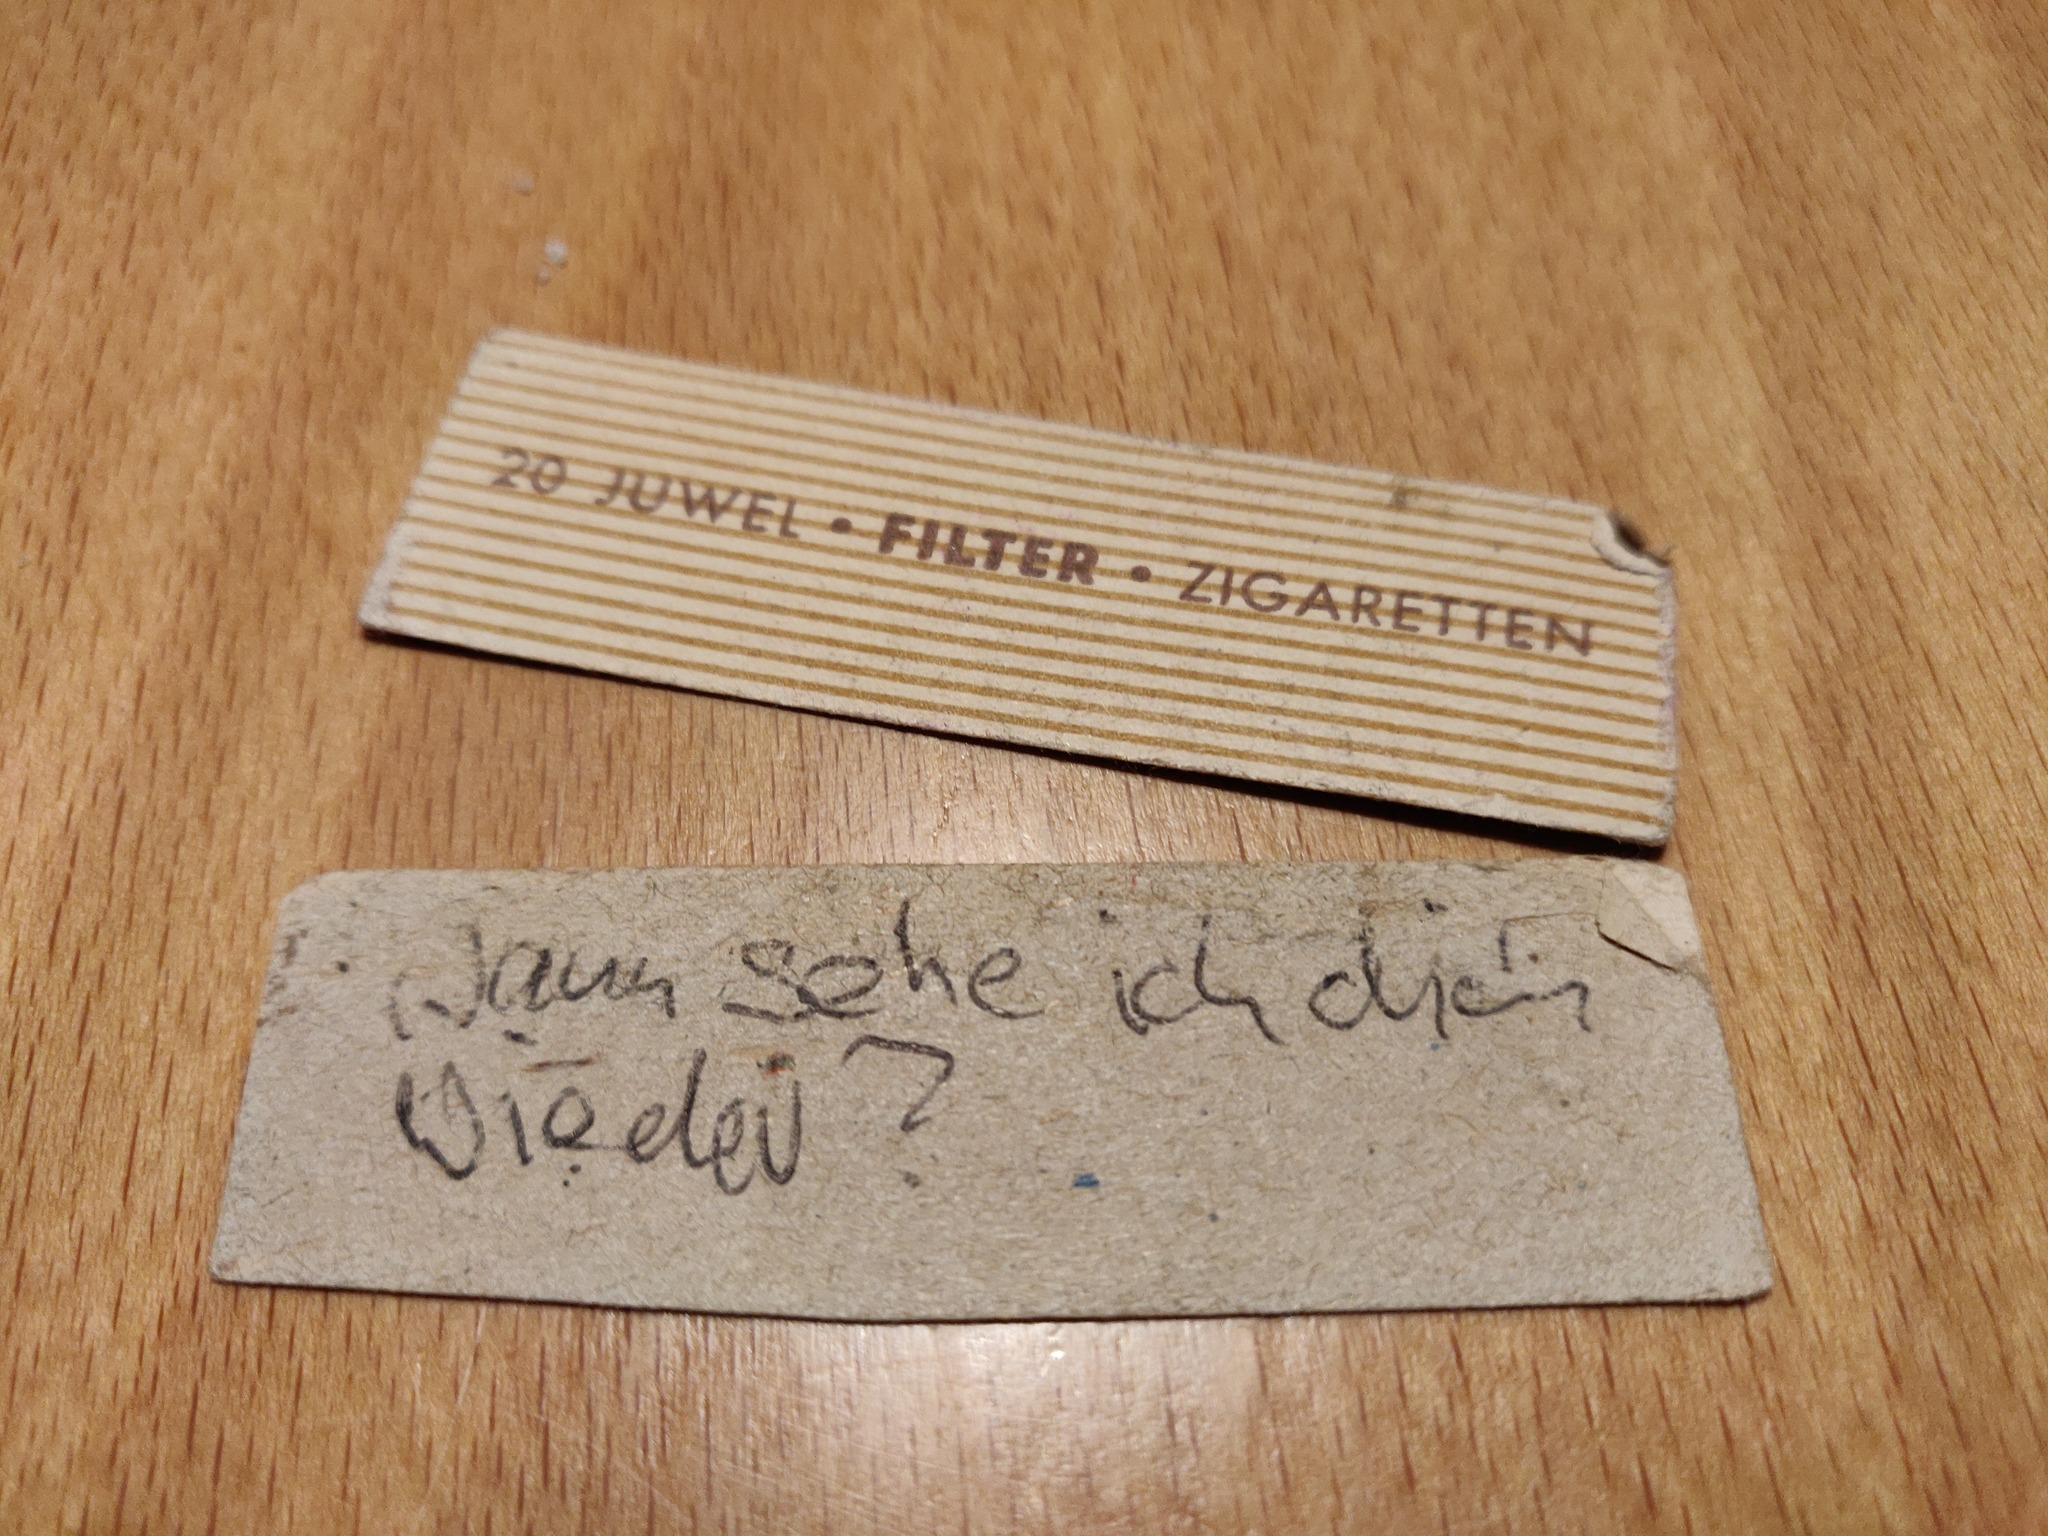 20 JUWEL • FILTER • ZIGARETTEN
Wann sehe ich dich
wieder?